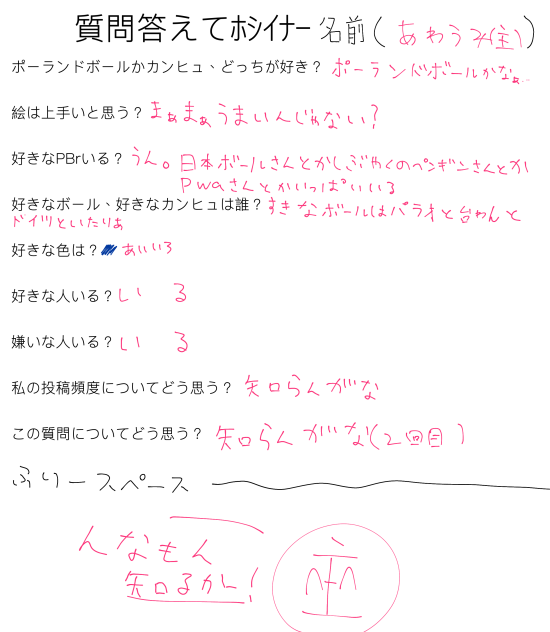 質問答えてホシイナー 名前(あわうみ(主))
ポーランドボールかカンヒュ、どっちが好き? ポーランドボールかなぁ…
絵は上手いと思う? まぁまぁうまいんじゃない?
好きなPBrいる? うん。日本ボールさんとかしぶやくのペンギンさんとか
Pwaさんとかいっぱいいる
好きなボール、好きなカンヒュは誰? すきなボールはパラオと台わんと
ドイツといたりあ
好きな色は? あいいろ
好きな人いる? いる
嫌いな人いる? いる
私の投稿頻度についてどう思う? 知らんがな
この質問についてどう思う? 知らんがな(2回目)
ふりースペース
んなもん
知るかー!
主